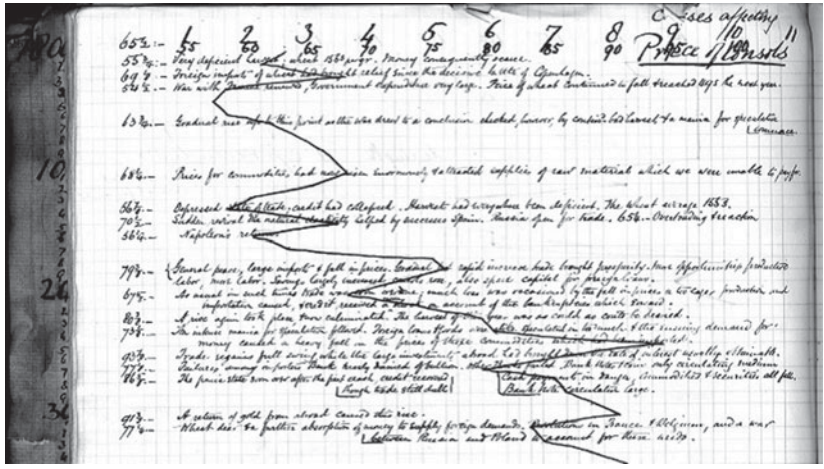 Causes affecting
1 2 3 4 5 6 7 8 9 10 11
65½:- 55 60 65 70 75 80 85 90 95 100
Price of Consols
55¾:- Very deficient harvest, wheat 155/ p qr. Money consequently scarce.
69¾:- Foreign imports of wheat had brought relief since the decisive battle of Copenhagen.
War with France renewed, Government expenditure very large. Price of wheat continued to fall & reached 49/3 the next year.
63¾:- Gradual rise up to this point as the war drew to a conclusion checked, however, by contin. bad harvest & a mania for speculation
commerce.
10
68¼:- Prices for commodities had now risen enormously & attracted supplies of raw material which we were unable to pay for.
56¾:- Depressed state of trade. credit had collapsed. Harvests had everywhere been deficient. The wheat average 155/3.
70½:- Sudden revival the natural elasticity helped by successes Spain. Russia open for trade. 65½- Overloading & reaction
56¼:- Napoleon's return
79¼:- General peace, large imports & fall in prices. Gradual & rapid increase trade brought prosperity. More opportunities produced
labor, more labor. Savings largely increased, also spare capital for foreign loans.
20
67½:- As usual in such times trade was over worked, much loss was occasioned by the fall in prices & too large production and
importation caused, & credit received a shock on account of the bankruptcies which ensued.
A rise again took place now culminated. The harvest of the year was as could as could be desired.
73½:- An intense mania for speculation followed. Foreign loans & goods were speculated in too much & the ensuing demand for
money caused a heavy fall in the prices of these commodities which had been imported.
93½:- Trade regains full swing while the large investments abroad had brought down the rate of interest equally & thinnable.
77¾:- Failures among importers Bank nearly drained of bullion. Bank notes now only circulating medium
86¾:- The panic state now over after the first crash, credit recovered
though trade still dull
Cash payments in danger, commodities & securities all fell.
Bank Note circulation large.
30
91½:- A return of gold from abroad caused this rise.
77½:- Wheat dear & a further absorption of money to supply foreign demands. Revolution in France & Belgium, and a war
between Russia and Poland to account for these needs.